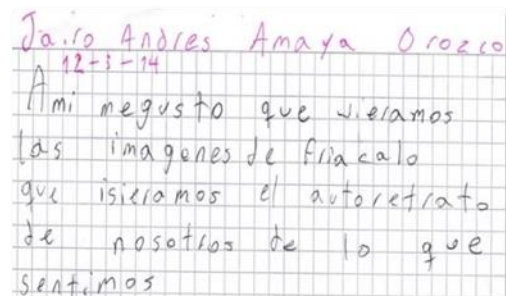 Jairo Andres Amaya Orozco
12-3-14
Ami megusto que vieramos
las imagenes de friacalo
que isieramos el autoretrato
de nosotros de lo que
sentimos